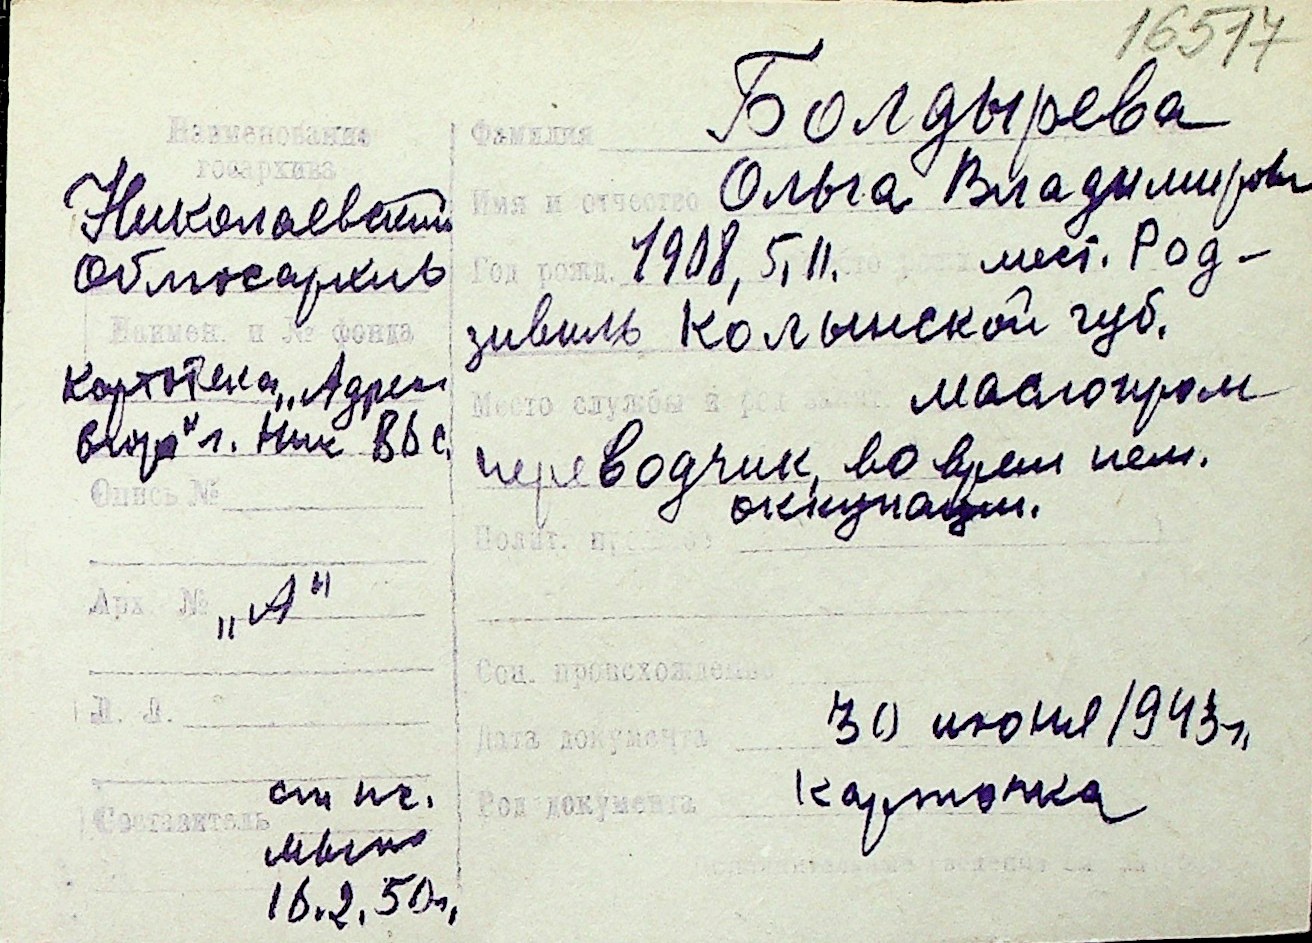 16517
Наименование
госархива
Николаевский
Облгосархив
Наимен. и № фонда
картотека „Адрес
бюро" г. Ник
Опись №
Арх. № „А"
Л. Л.
Составитель
16.2.50г.
Фамилия Болдырева
Имя и отчество Ольга Владимировн
Год рожд. 1908, 5, II. мест. Род-
зивиль Колынской губ.
Место службы и маслопром
переводчик, во время нем.
оккупации.
Полит.
Соц. происхождение
Дата документа 30 июня 1943г.
Род документа карточка